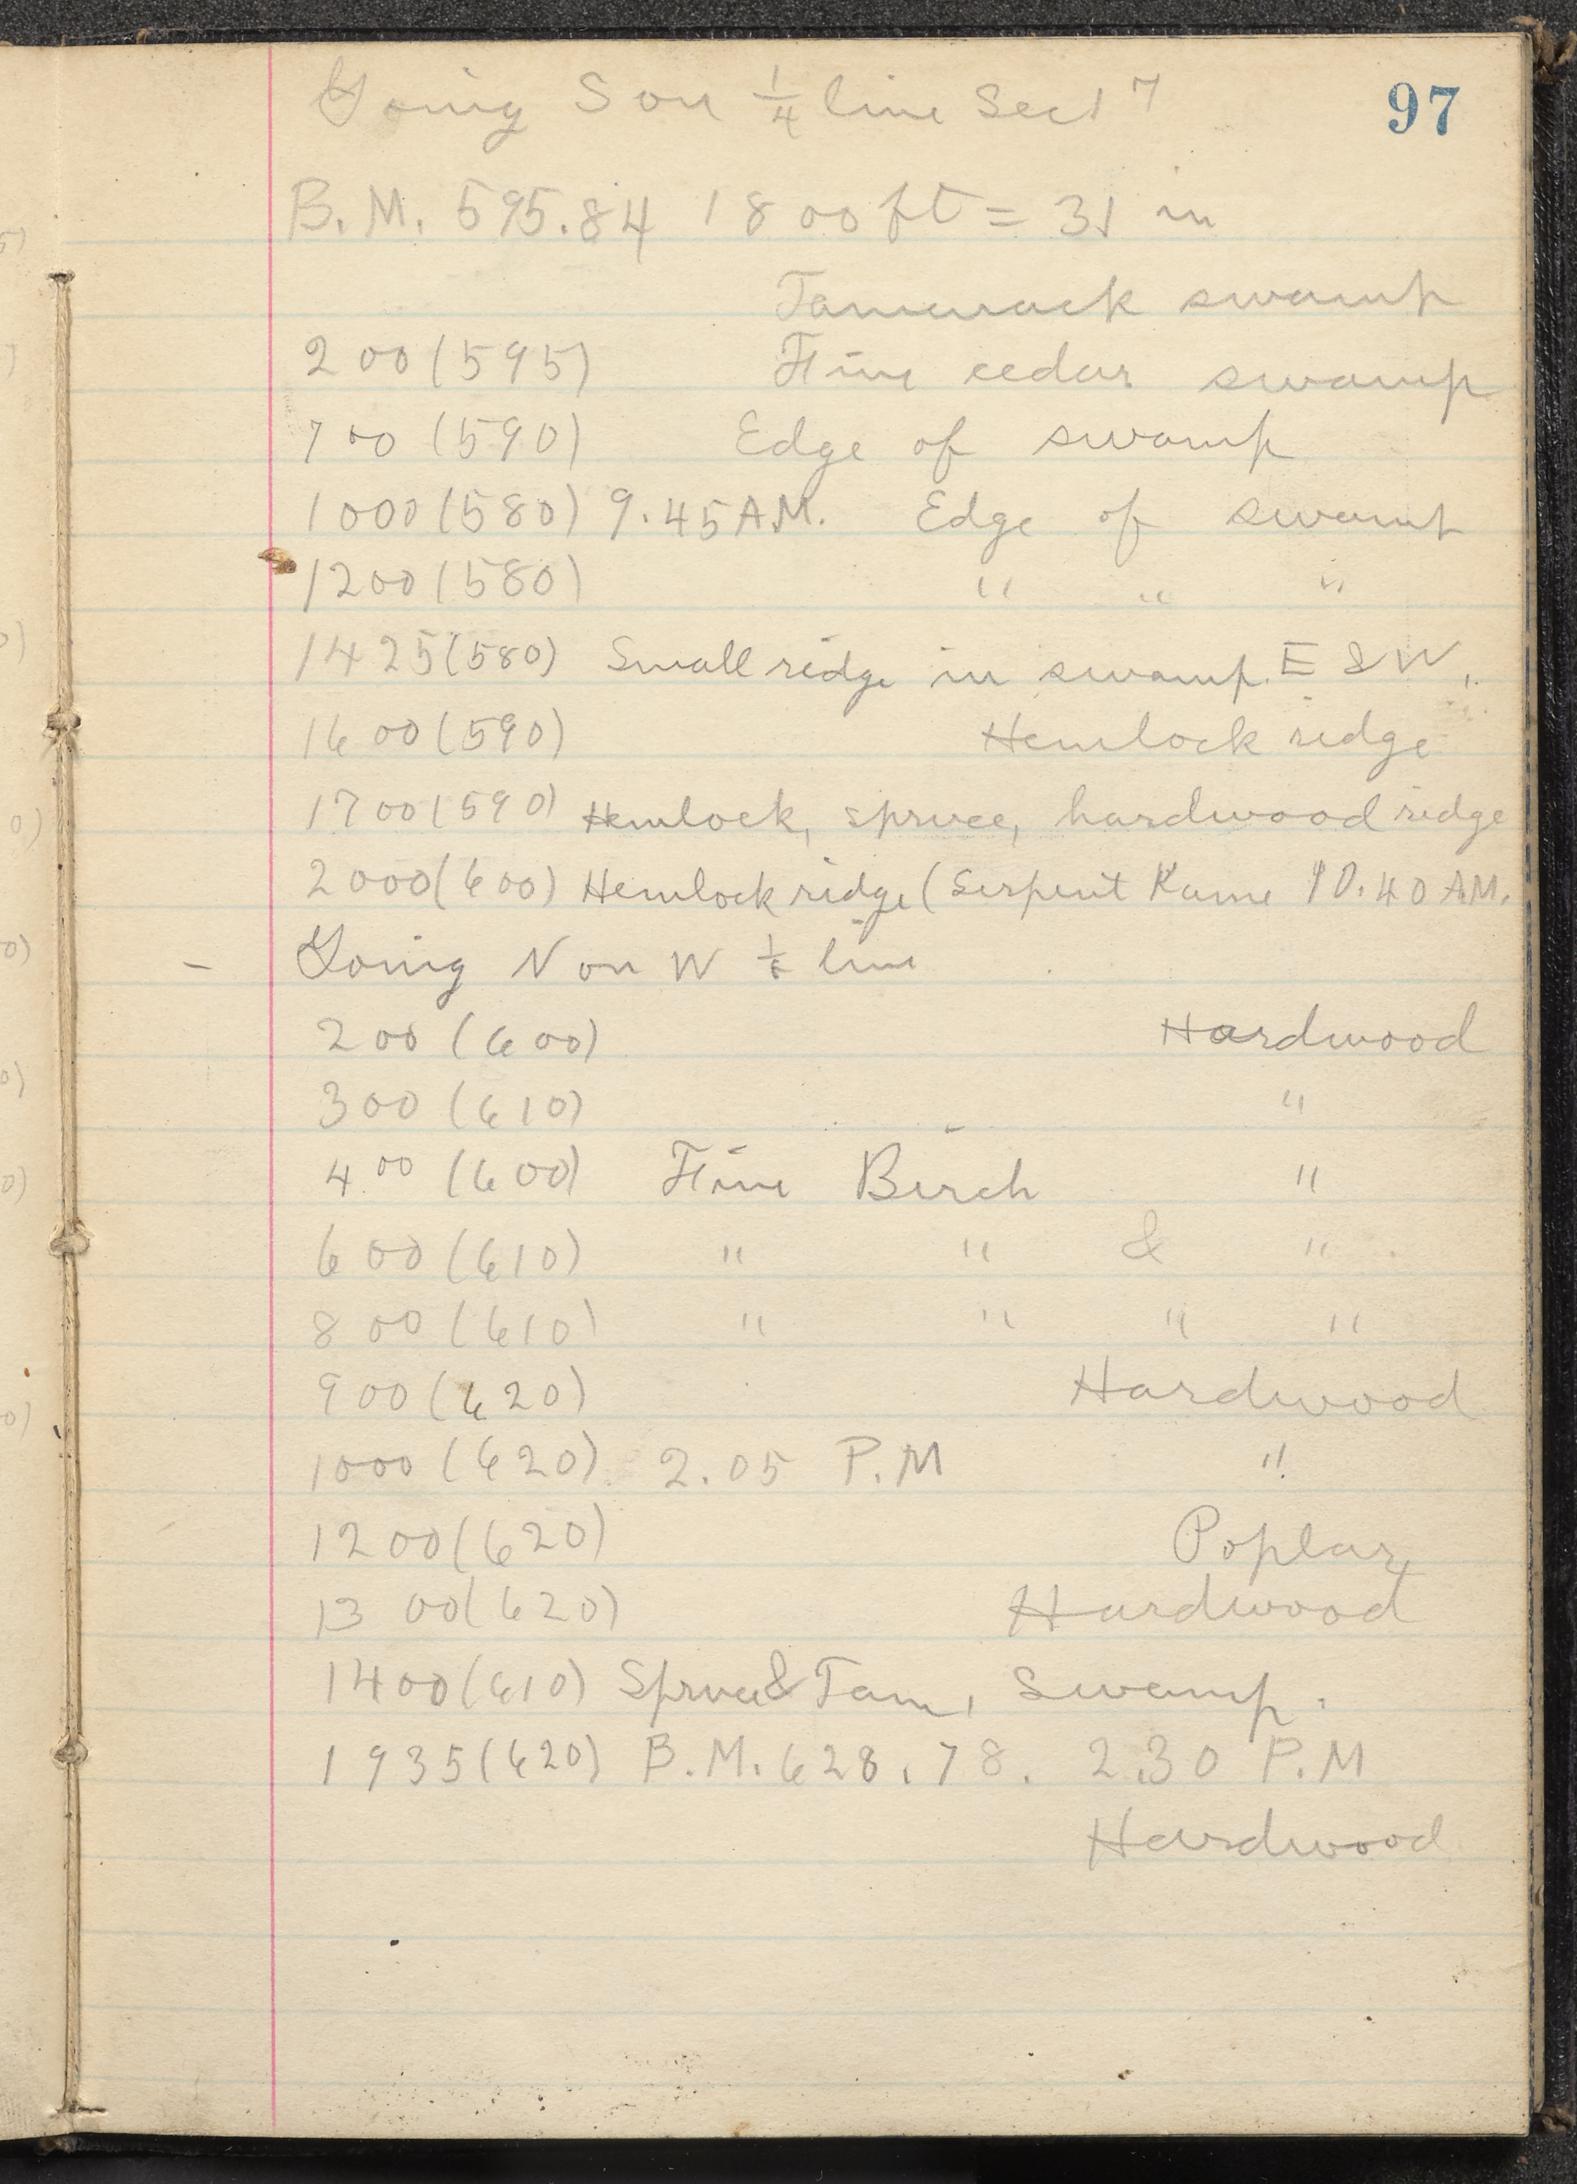 97
Going S on 1/4 line Sec 17
B.M. 595.84 1800 ft = 31 in
Tamarack swamp
200 (595) Fine cedar swamp
700 (590) Edge of swamp
1000 (580) 9.45 A.M. Edge of swamp
1200 (580) " " "
1425 (580) Small ridge in swamp. E & W.
1600 (590) Hemlock ridge
1700 (590) Hemlock, spruce, hardwood ridge
2000 (600) Hemlock ridge (Serpent Kame 10.40 AM.
Going N on W line
200 (600) Hardwood
300 (610) "
400 (600) Fine Birch "
600 (610) " " & "
800 (610) " " " "
900 (620) Hardwood
1000 (620) 2.05 P.M "
1200 (620) Poplar
1300 (620) Hardwood
1400 (610) Spruce & Tam. Swamp.
1935 (620) B.M. 628.78. 2.30 P.M
Hardwood